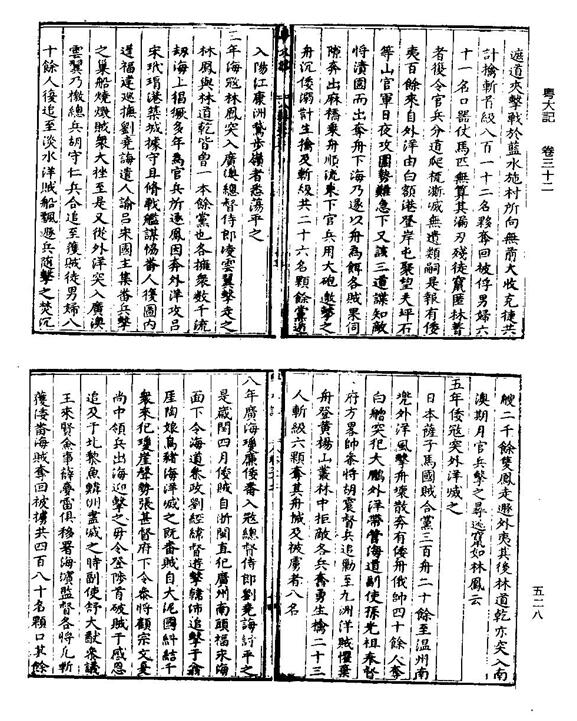 粵大記 卷三十二
遮道夾擊戰於藍水施村所向無前大收克捷共
計擒斬首級八百一十二名夥奪回被俘男婦六
十一名口器仗馬匹無算其漏刃殘徒竄匿林莽
者復令官兵分道爬梳澌滅無遺類嗣是報有倭
夷百餘來自外洋由白額港登岸屯聚望夫坪石
等山官軍日夜攻圍勢難急下又設三道謀知敵
將潰圍而出奔舟下海乃遂以舟為餌各賊果伺
隙奔出麻橋乘舟順流東下官兵用大砲邀擊之
舟沉倭溺計生擒及斬級共二十六名顆餘黨遁
入陽江廣洲驚步嶺者悉蕩平之
二年海寇林鳳突入廣澳總督侍郎凌雲翼擊走之
林鳳與林道乾皆曾一本餘黨也各擁衆數千流
劫海上猖獗多年為官兵所逐鳳因奔外洋攻呂
宋玳瑁港築城據守且修戰艦謀脇番人復圖內
逞福建巡撫劉堯誨遣人諭呂宋國主集番兵擊
之巢船燒燬賊衆大挫至是又從外洋突入廣澳
雲翼乃檄總兵胡守仁兵合追至獲賊徒男婦八
十餘人後追至淡水洋賊船飄遯兵随擊之焚沉
艘二千餘隻鳳走遯外夷其後林道乾亦突入南
澳期月官兵擊之尋逃竄如林鳳云
五年倭寇突外洋滅之
日本薩子馬國賊合黨三百舟二十餘至温州南
麂外洋風擊舟壞散奔有倭舟俄帥四十餘人奔
白鱛突犯大鵬外洋帶管海道副使孫光祖奉督
府方畧帥參將胡震督兵追勦至九洲洋賊懼棄
舟登黄楊山叢林中拒敵各兵奮勇生擒二十三
人斬級六顆奪其舟械及被虜者八名
八年廣海瓊廉倭番入寇總督侍郎劉堯誨討平之
是歲閏四月倭賊自浙閩直犯廣州南頭福來海
面下令海道參政劉經緯督遊擊韓沛追擊于翕
厓陶娘烏豬海洋滅之旣番賊自大泥國糾結千
衆來犯瓊崖聲勢張甚督府下令參將顧宗文
尚中領兵出海迎擊之毋令登陟首破賊于感恩
追及于北黎魚鱗洲盡滅之時副使舒大猷參議
王來賢僉事薛夢雷俱移署海濱監督各將凡斬
獲倭番海賊奪回被擄共四百八十名顆口其餘
五二八